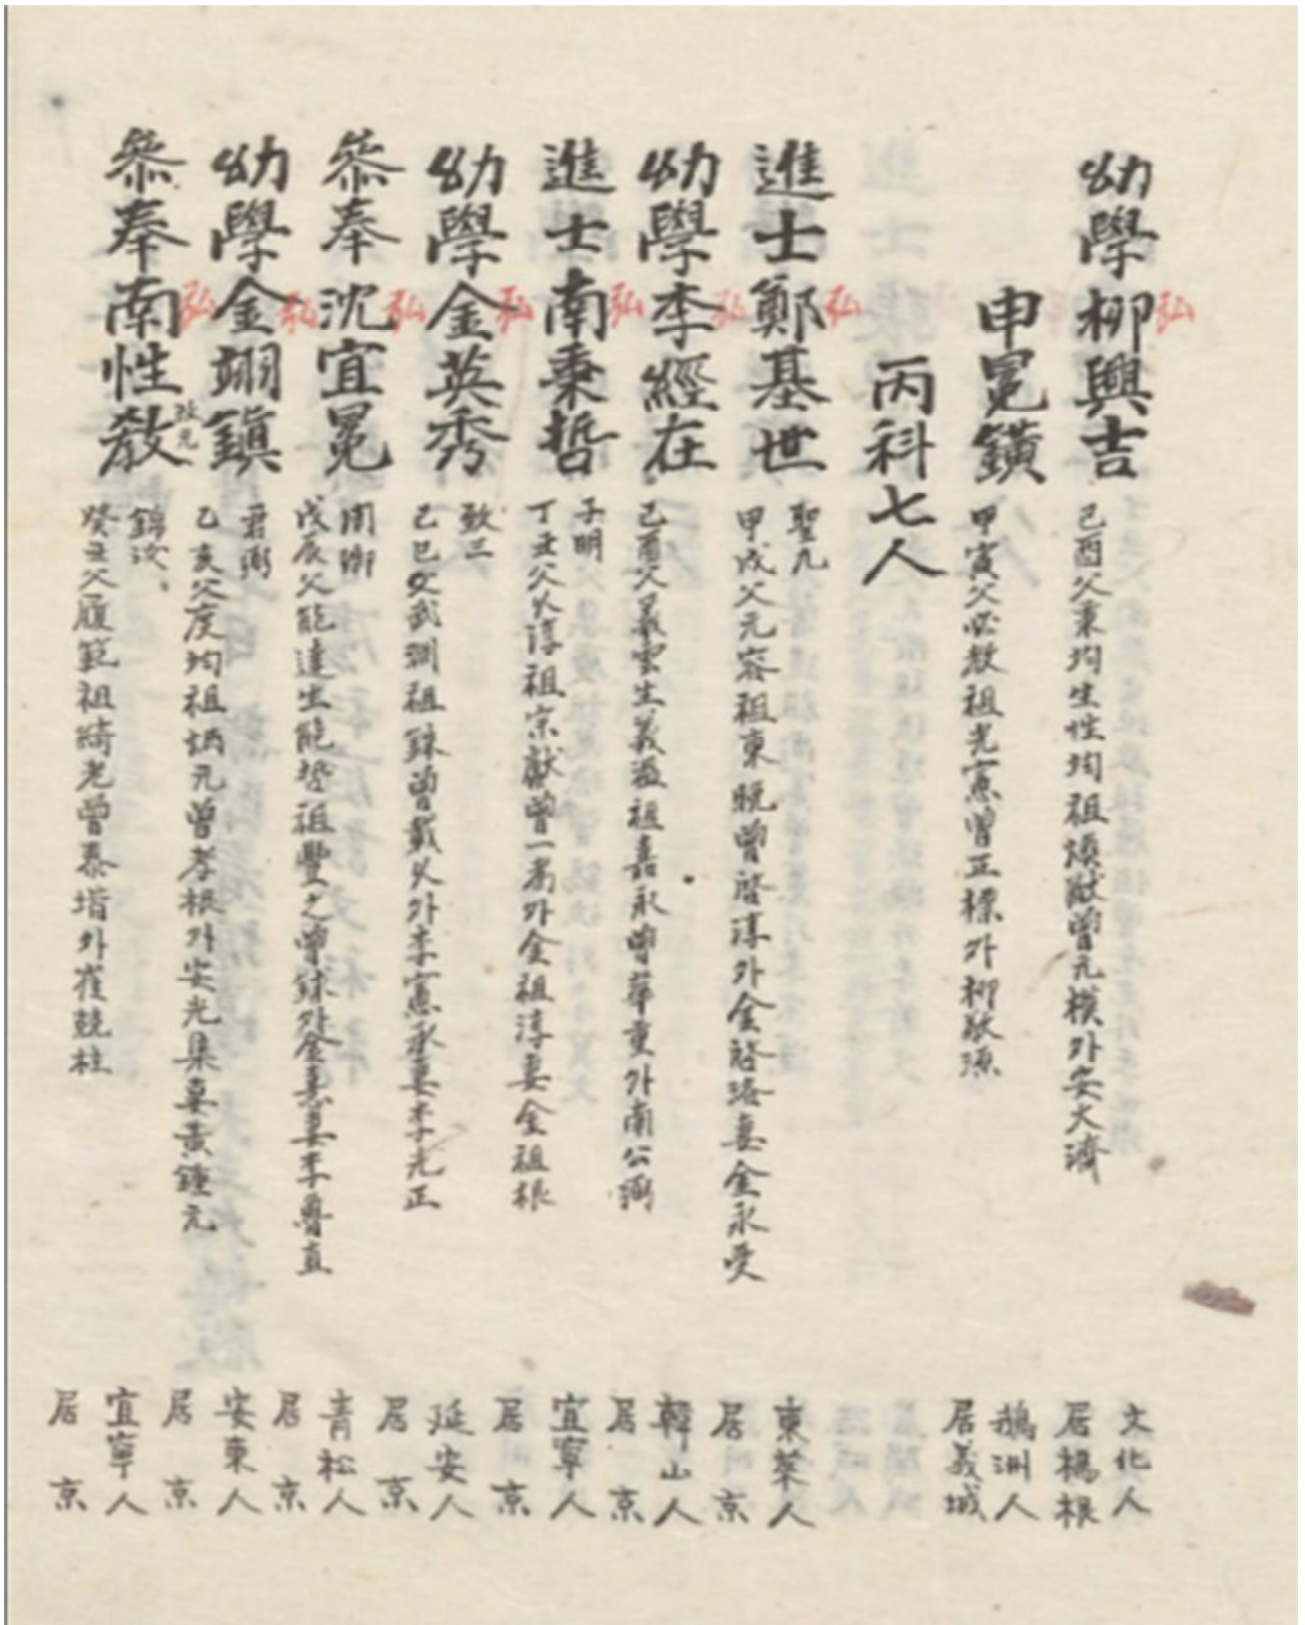 幼學柳興吉
弘
己酉父秉均生性均祖煥猷曾元模外安大濟
文化人
居楊根
申冕鐄
甲寅父必教祖光憲曾正標外柳
鵝洲人
居義城
丙科七人
進士鄭基世
弘
聖九
甲戌父元容祖東晚曾啓淳外金啓洛妻金永受
東萊人
居京
幼學李經在
弘
己酉父羲雲生羲溫祖嘉永曾華重外南公弼
韓山人
居京
進士南秉哲
弘
子明
丁丑父久淳祖宗獻曾一為外金祖淳妻金祖根
宜寧人
居京
幼學金英秀
弘
致三
己巳父武淵祖鉌曾戴久外李憲丞妻李光正
延安人
居京
叅奉沈宜冕
弘
周卿
戊辰父能達生能垫祖豐之曾鉌外金熹妻李魯直
青松人
居京
幼學金翊鎮
弘
君弼
乙亥父度均祖炳元曾孝根外安光集妻黃鍾元
安東人
居京
叅奉南性教
弘
改元
錦汝
癸丑父履範祖綺老曾泰堦外崔兢柱
宜寧人
居京